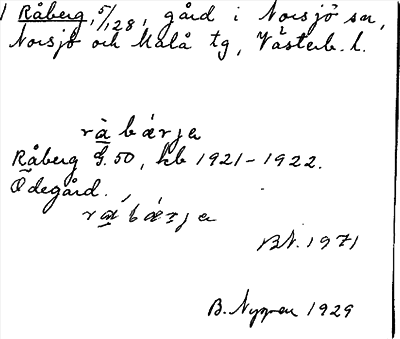 1 Råberg, 5/128, gård i Norsjö sn,
Norsjö och Malå tg, Västerb. l.
rà bærja
Råberg £ 50, kb 1921-1922.
Ödegård.
rá bærja
BN. 1971
B. Nygren 1929